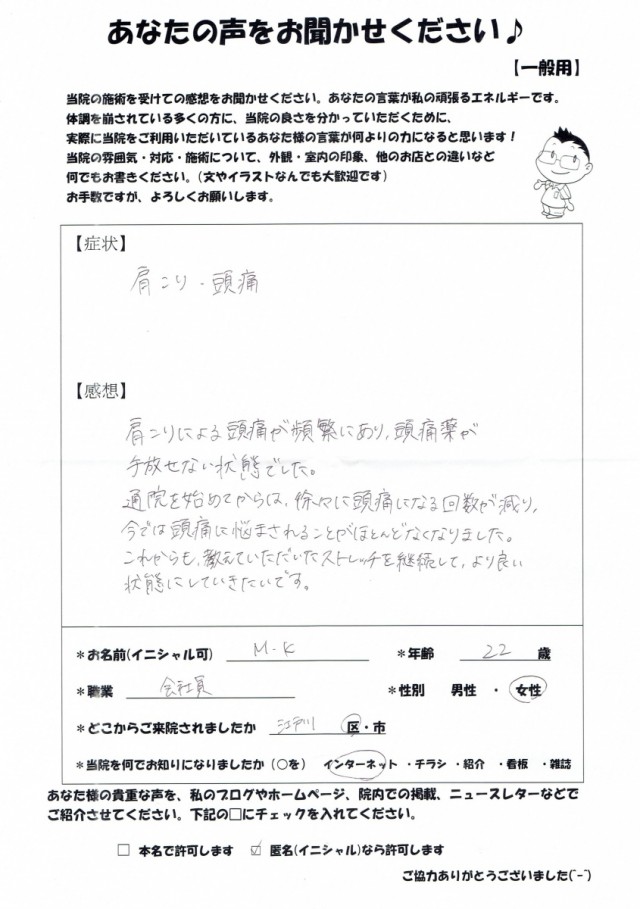 あなたの声をお聞かせください♪
【一般用】
当院の施術を受けての感想をお聞かせください。あなたの言葉が私の頑張るエネルギーです。
体調を崩されている多くの方に、当院の良さを分かっていただくために、
実際に当院をご利用いただいているあなた様の言葉が何よりの力になると思います!
当院の雰囲気・対応・施術について、外観・室内の印象、他のお店との違いなど
何でもお書きください。(文やイラストなんでも大歓迎です)
お手数ですが、よろしくお願いします。
【症状】
肩こり・頭痛
【感想】
肩こりによる頭痛が頻繁にあり、頭痛薬が
手放せない状態でした。
通院を始めてからは、徐々に頭痛になる回数が減り、
今では頭痛に悩まされることがほとんどなくなりました。
これからも、教えていただいたストレッチを継続して、より良い
状態にしていきたいです。
*お名前(イニシャル可) M・K *年齢 22 歳
*職業 会社員 *性別 男性 ・ 女性
*どこからご来院されましたか 江戸川 区・市
*当院を何でお知りになりましたか(○を) インターネット ・チラシ ・紹介 ・看板 ・雑誌
あなた様の貴重な声を、私のブログやホームページ、院内での掲載、ニュースレターなどで
ご紹介させてください。下記の□にチェックを入れてください。
□ 本名で許可します ☑ 匿名(イニシャル)なら許可します
ご協力ありがとうございました(^-^)